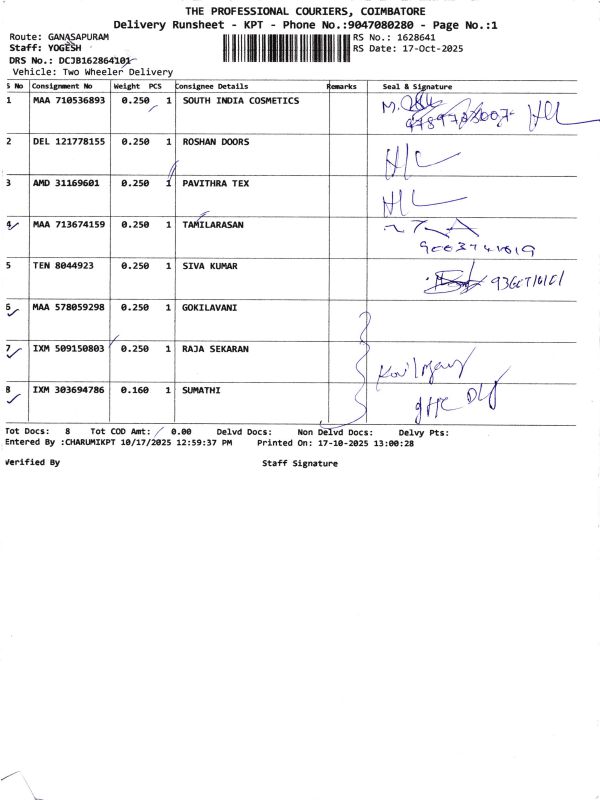 THE PROFESSIONAL COURIERS, COIMBATORE
Delivery Runsheet - KPT - Phone No.:9047080280 - Page No.:1
Route: GANASAPURAM RS No.: 1628641
Staff: YOGESH RS Date: 17-Oct-2025
DRS No.: DCJB162864101
Vehicle: Two Wheeler Delivery
S No Consignment No Weight PCS Consignee Details Remarks Seal & Signature
1 MAA 710536893 0.250 1 SOUTH INDIA COSMETICS
2 DEL 121778155 0.250 1 ROSHAN DOORS
3 AMD 31169601 0.250 1 PAVITHRA TEX
4 MAA 713674159 0.250 1 TAMILARASAN
5 TEN 8044923 0.250 1 SIVA KUMAR
6 MAA 578059298 0.250 1 GOKILAVANI
7 IXM 509150803 0.250 1 RAJA SEKARAN
8 IXM 303694786 0.160 1 SUMATHI
Tot Docs: 8 Tot COD Amt: 0.00 Delvd Docs: Non Delvd Docs: Delvy Pts:
Entered By :CHARUMIKPT 10/17/2025 12:59:37 PM Printed On: 17-10-2025 13:00:28
Verified By Staff Signature